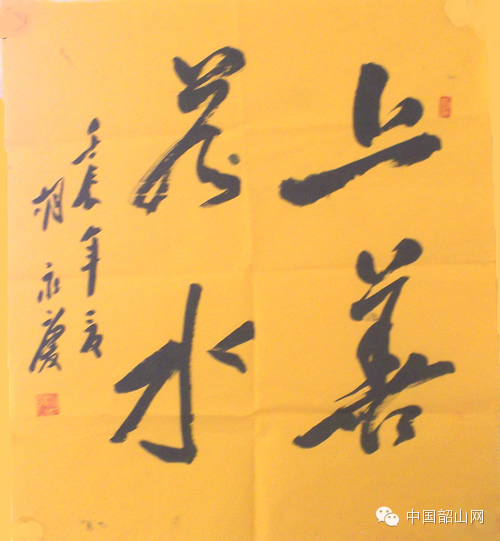 上善
若水
壬辰年夏
胡永庆
中国韶山网